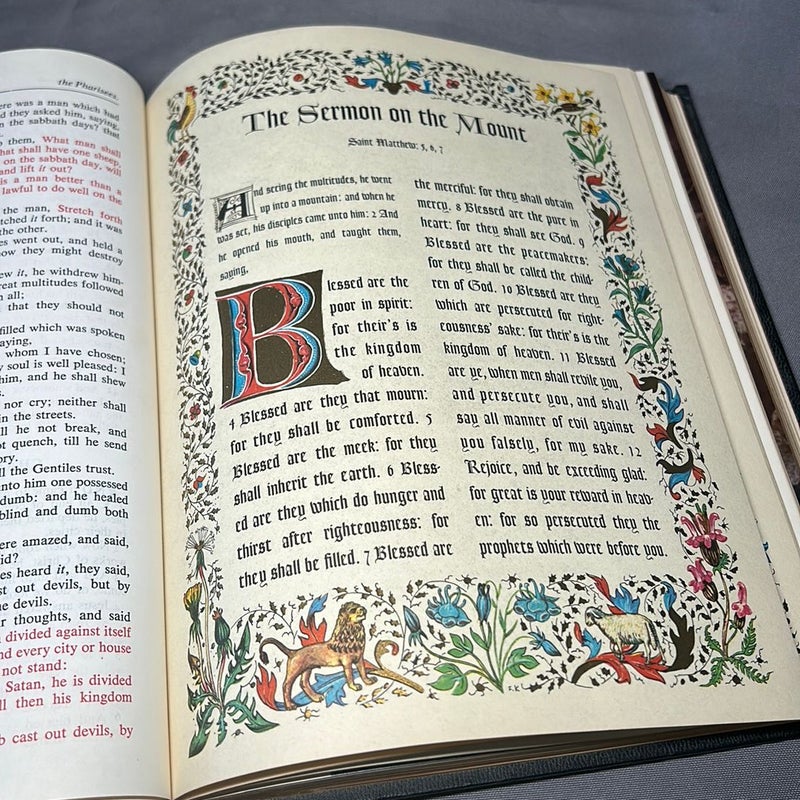 the Pharisees.
ere was a man which had
d they asked him, saying,
n the sabbath days? that
o them, What man shall
hat shall have one sheep,
on the sabbath day, will
and lift it out?
is a man better than a
lawful to do well on the
the man, Stretch forth
tched it forth; and it was
the other.
es went out, and held a
ow they might destroy
ew it, he withdrew him-
reat multitudes followed
all;
that they should not
filled which was spoken
aying,
whom I have chosen;
y soul is well pleased: I
him, and he shall shew
s.
nor cry; neither shall
in the streets.
ll he not break, and
ot quench, till he send
ory.
ll the Gentiles trust.
nto him one possessed
dumb: and he healed
blind and dumb both
ere amazed, and said,
id?
es heard it, they said,
st out devils, but by
e devils.
r thoughts, and said
divided against itself
nd every city or house
not stand:
Satan, he is divided
ll then his kingdom
b cast out devils, by
The Sermon on the Mount
Saint Matthew: 5, 6, 7
And seeing the multitudes, he went
up into a mountain: and when he
was set, his disciples came unto him: 2 And
he opened his mouth, and taught them,
saying,
Blessed are the
poor in spirit:
for their's is
the kingdom
of heaven.
4 Blessed are they that mourn:
for they shall be comforted. 5
Blessed are the meek: for they
shall inherit the earth. 6 Bless-
ed are they which do hunger and
thirst after righteousness: for
they shall be filled. 7 Blessed are
the merciful: for they shall obtain
mercy. 8 Blessed are the pure in
heart: for they shall see God. 9
Blessed are the peacemakers:
for they shall be called the child-
ren of God. 10 Blessed are they
which are persecuted for right-
eousness' sake: for their's is the
kingdom of heaven. 11 Blessed
are ye, when men shall revile you,
and persecute you, and shall
say all manner of evil against
you falsely, for my sake. 12
Rejoice, and be exceeding glad:
for great is your reward in heav-
en: for so persecuted they the
prophets which were before you.